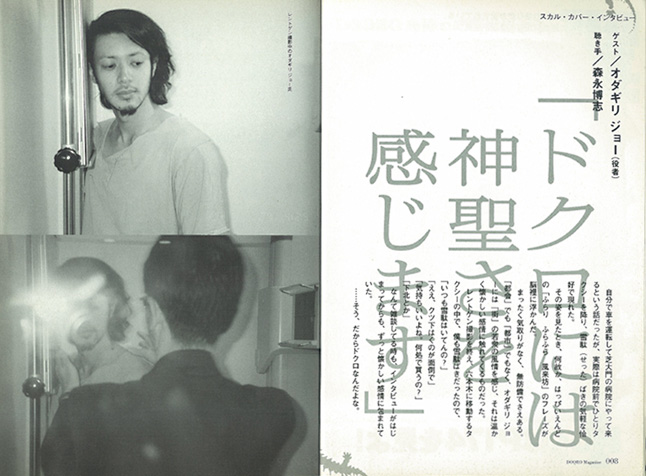 スカル・カバー・インタビュー
ゲスト／オダギリ ジョー（役者）
聴き手／森永博志
「ドクロには
神聖さを
感じます」
自分で車を運転して芝大門の病院にやって来
るという話だったが、実際は病院前でひとりタ
クシーを降り、雪駄（せった）ばきの気軽な恰
好で現れた。
その姿を見たとき、何故か、はっぴいえんど
の「ふらり ふらふら 風来坊」のフレーズが
脳裡に浮かんだ。
まったく気取りがなく、無防備でさえある。
「都会」でも「都市」でもなく、オダギリ ジョー
には「街」の若衆の風情を感じ、それは温か
く懐かしい感情に触れてくるものだった。
レントゲン撮影を終え、六本木に移動するタ
クシーの中で、僕も雪駄ばきだったので、
「いつも雪駄はいてんの？」
「ええ、クツ下はくのが面倒で」
「気持ちいいよね。何処で買うの？」
「下北とか」
なんて雑談してる時も、インタビューがはじ
まってからも、ずっと懐かしい感情に包まれて
いた。
……そう、だからドクロなんだよな。
レントゲン撮影中のオダギリ ジョー氏
DOQRO Magazine 008